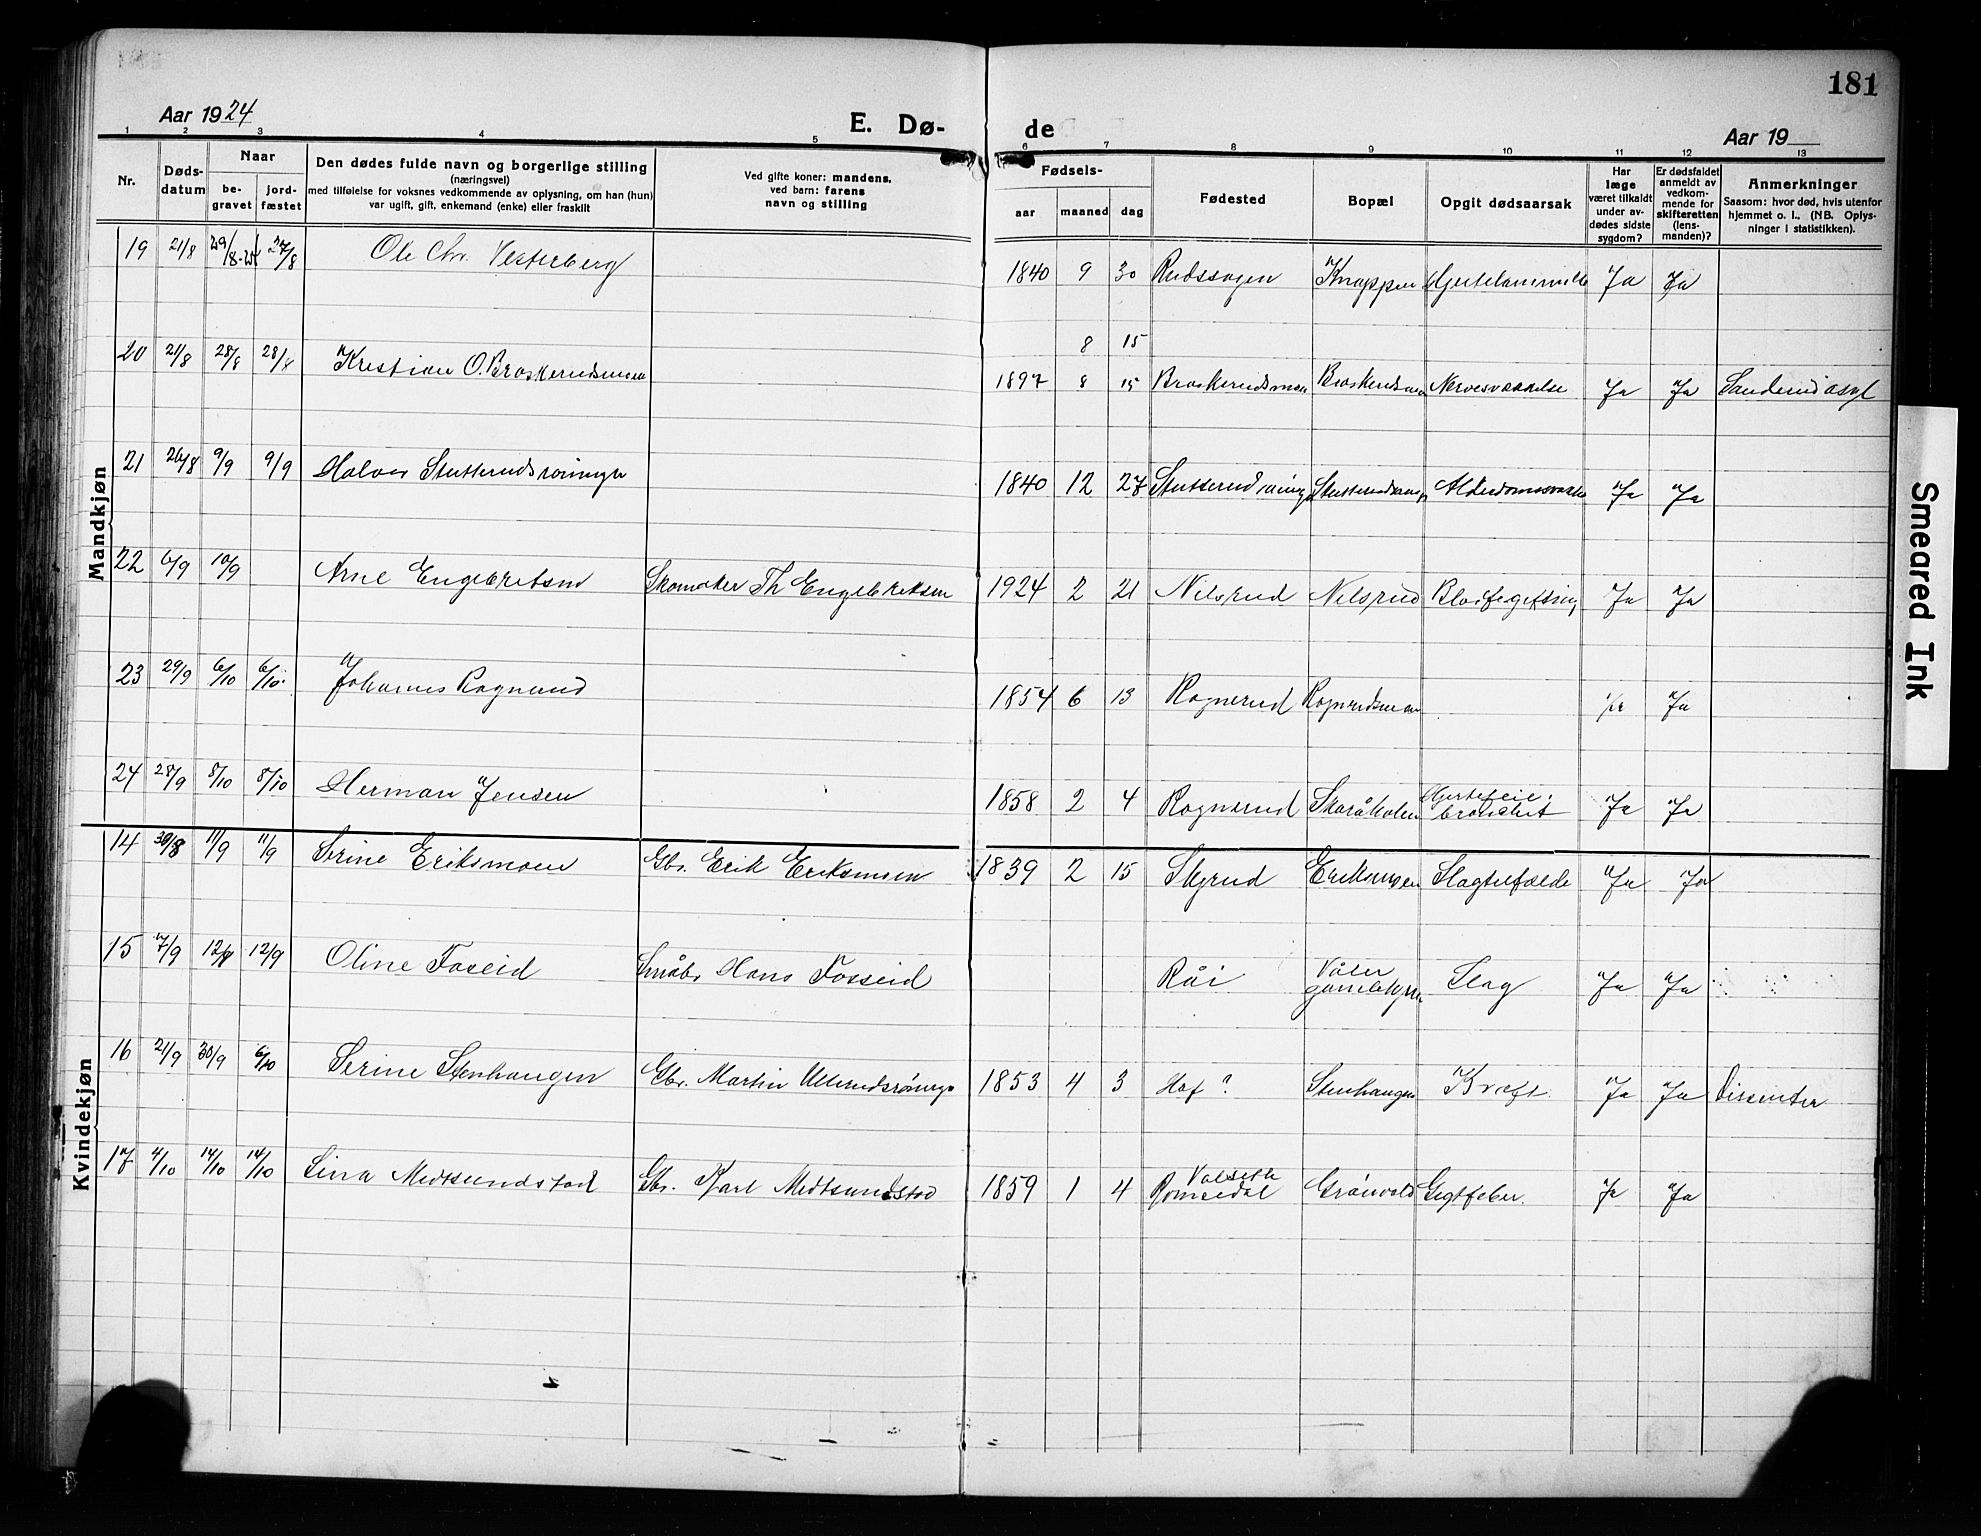 181
Aar 1924
E. Dø-
de
Aar 19
1 2 3 4 5 6 7 8 9 10 11 12 13
Nr.
Døds-
datum
Naar
be-
gravet
jord-
fæstet
Den dødes fulde navn og borgerlige stilling
(næringsvei)
med tilføielse for voksnes vedkommende av oplysning, om han (hun)
var ugift, gift, enkemand (enke) eller fraskilt
Ved gifte koner: mandens,
ved barn: farens
navn og stilling
Fødsels-
aar maaned dag
Fødested
Bopæl
Opgit dødsaarsak
Har
læge
været tilkaldt
under av-
dødes sidste
sygdom?
Er dødsfaldet
anmeldt av
vedkom-
mende for
skifteretten
(lens-
manden)?
Anmerkninger
Saasom: hvor død, hvis utenfor
hjemmet o. l., (NB. Oplys-
ninger i statistikken).
Mandkjøn
19 21/8 29/8 27/8 Ole Chr. Vesterberg 1840 9 30 Knappen Ja Ja
8 15
20 21/8 28/8 28/8 Kristian O. Braskerudsmoen 1897 8 15 Braskerudsmoen Nervesvækkelse Ja Ja Sanderud asyl
21 26/8 9/9 9/9 Halvor 1840 12 27 Ja Ja
22 6/9 10/9 Arne Engebretsen Skomaker Th Engebretsen 1924 2 21 Nilsrud Nilsrud Blodforgiftning Ja Ja
23 29/9 6/10 6/10 Johannes Rognerud 1854 6 13 Rognerud Rognerudsmoen Ja
24 28/9 8/10 8/10 Herman Jensen 1858 2 4 Rognerud Skaråholen Ja Ja
Kvindekjøn
14 30/8 11/9 11/9 Serine Eriksmoen Gbr. Erik Eriksmoen 1839 2 15 Skjrud Eriksmoen Slagtilfælde Ja Ja
15 7/9 12/9 12/9 Oline Fosseid Småbr Hans Fosseid Råi Våler gamlehjem Slag Ja Ja
16 21/9 30/9 6/10 Serine Stenhaugen Gbr. Martin 1853 4 3 Hof ? Stenhaugen Kræft. Ja Ja Dissenter
17 4/10 14/10 14/10 Lina Midtsundstad Gbr. Karl Midtsundstad 1859 1 4 Romsdal Grønvold Gigtfeber. Ja Ja
Smeared Ink